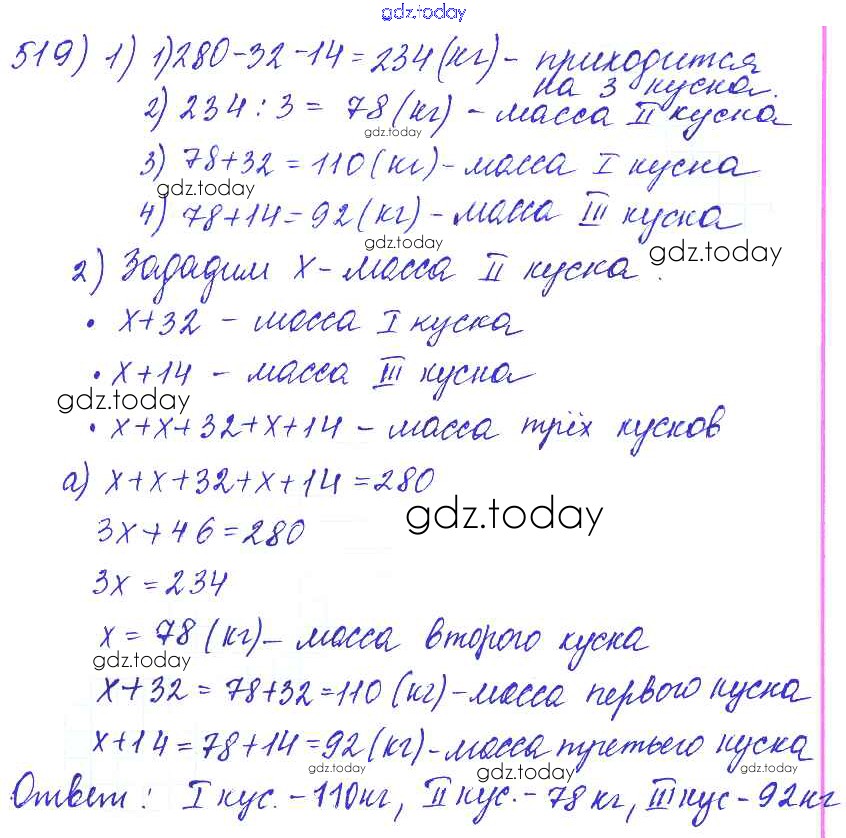 gdz.today
519) 1) 1) 280-32-14=234(кг) - приходится
на 3 куска.
2) 234:3= 78(кг) - масса II куска
gdz.today
3) 78+32=110(кг) - масса I куска
gdz.today
4) 78+14=92(кг) - масса III куска
gdz.today
gdz.today
2) Зададим x - масса II куска.
• x+32 - масса I куска
• x+14 - масса III куска
gdz.today
• x+x+32+x+14 - масса трёх кусков
а) x+x+32+x+14=280
gdz.today
3x+46=280
3x=234
x=78(кг) - масса второго куска
gdz.today
x+32=78+32=110(кг) - масса первого куска
x+14=78+14=92(кг) - масса третьего куска
gdz.today gdz.today gdz.today
Ответ: I кус. - 110кг, II кус. - 78кг, III кус - 92кг